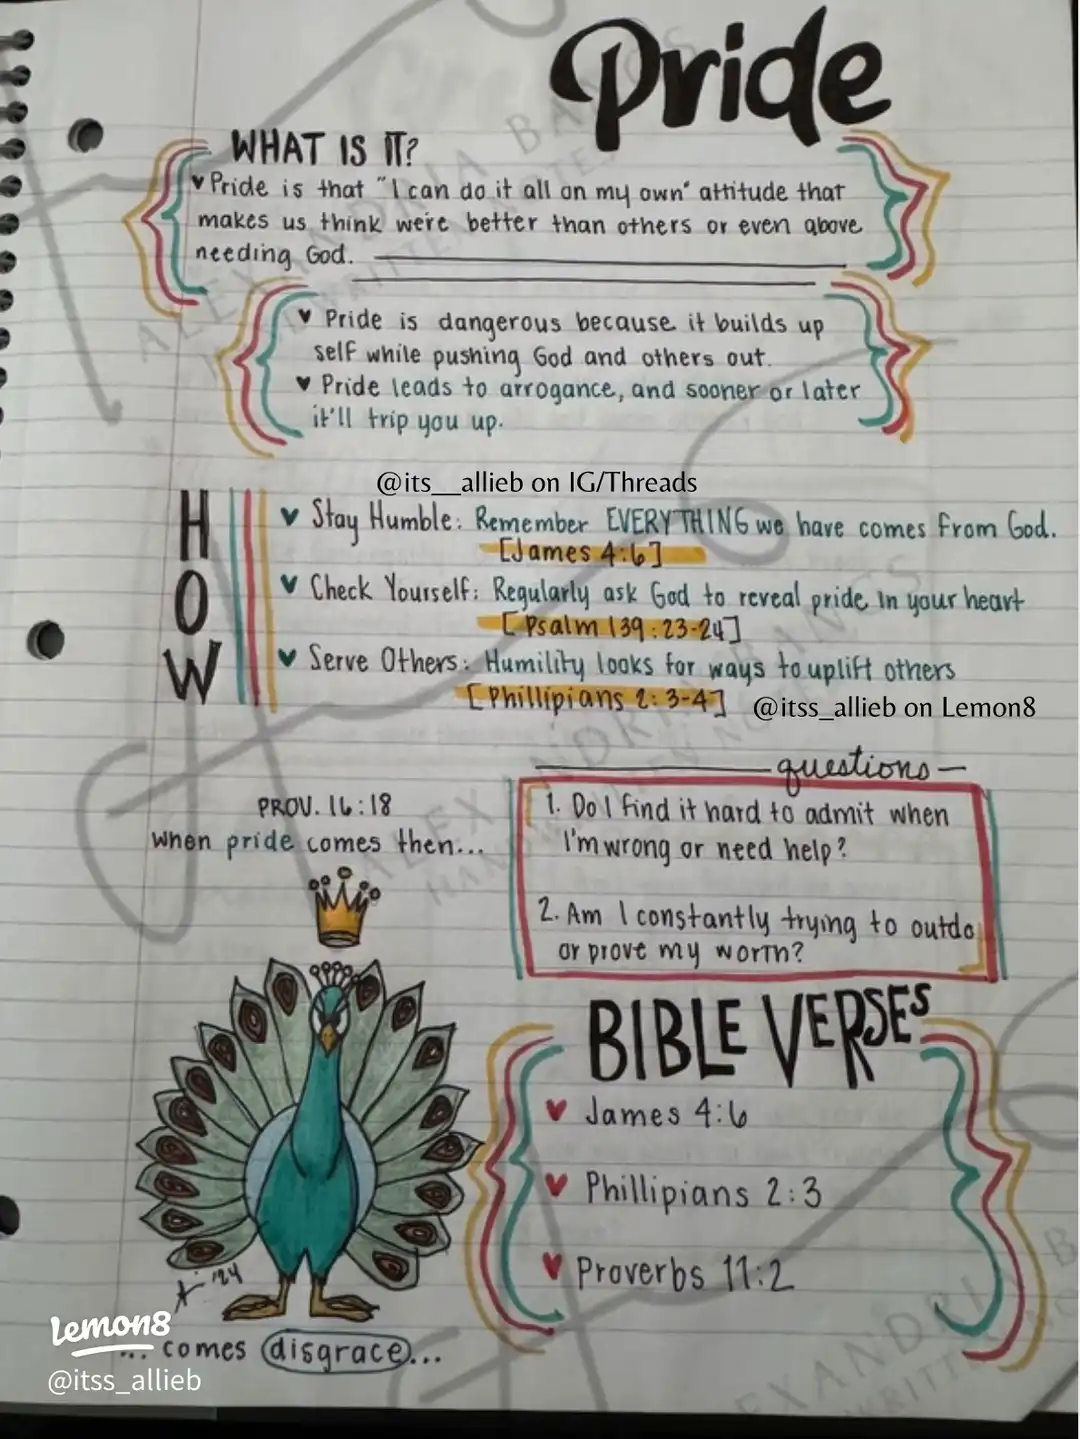 Pride
WHAT IS IT?
♥ Pride is that "I can do it all on my own" attitude that
makes us think we're better than others or even above
needing God.
♥ Pride is dangerous because it builds up
self while pushing God and others out.
♥ Pride leads to arrogance, and sooner or later
it'll trip you up.
@its__allieb on IG/Threads
HOW
♥ Stay Humble: Remember EVERYTHING we have comes from God.
[James 4:6]
♥ Check Yourself: Regularly ask God to reveal pride in your heart
[Psalm 139:23-24]
♥ Serve Others: Humility looks for ways to uplift others
[Phillipians 2:3-4]
@itss_allieb on Lemon8
questions
1. Do I find it hard to admit when
I'm wrong or need help?
2. Am I constantly trying to outdo
or prove my worth?
PROV. 16:18
when pride comes then...
'24
... comes disgrace...
BIBLE VERSES
♥ James 4:6
♥ Phillipians 2:3
♥ Proverbs 11:2
Lemon8
@itss_allieb
ALEXANDRIA BANGS
HANDWRITTEN NOTES